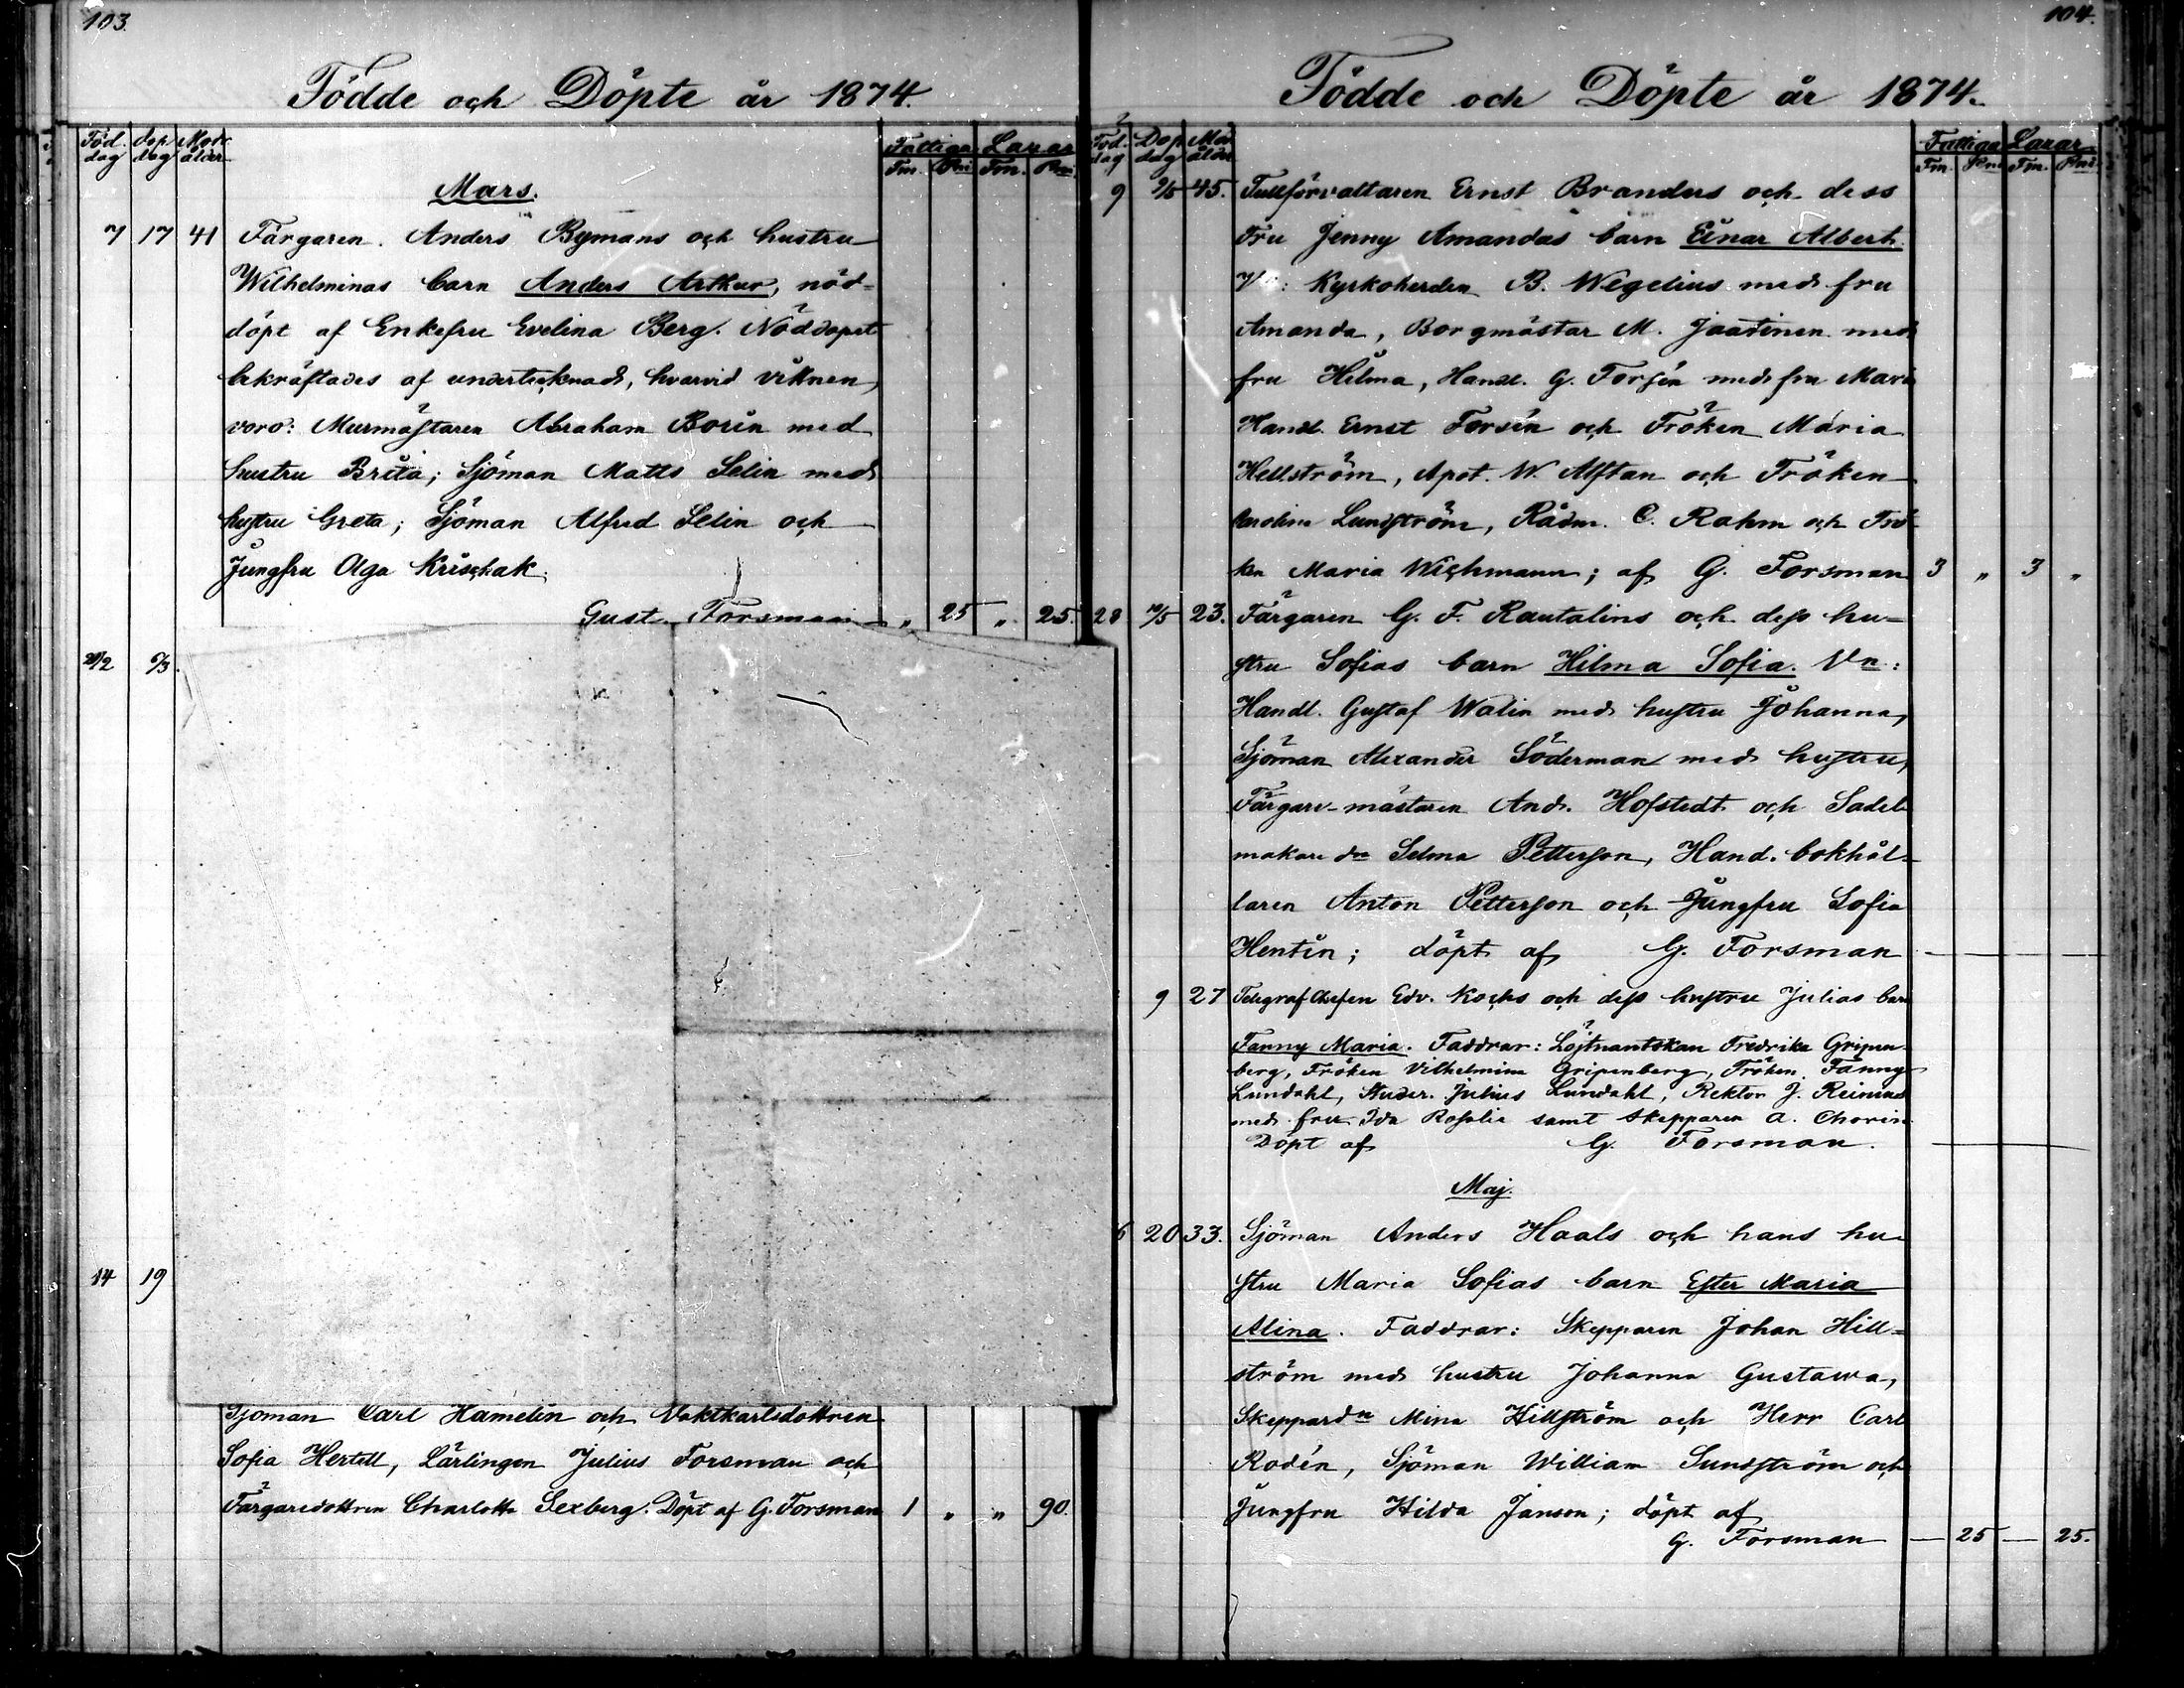 103.
Födde och Döpte år 1874.
Föd. dag Dop dag Mod. ålder Fattiga Lazar.
Fm. Pni Fm. Pni
Mars.
7 17 41 Färgaren Anders Bymans och hustru
Wilhelminas barn Anders Arthur, nöd-
döpt af Enkefru Evelina Berg. Nöddopet
bekräftades af undertecknad, hvarvid vittnen
voro: Murmästaren Abraham Borin med
hustru Brita; Sjöman Matts Selin med
hustru Greta; Sjöman Alfred Selin och
Jungfru Olga Krischak.
Gust. Forsman „ 25 „ 25.
6/3.
14 19
Sjöman Carl Hamelin och Vaktkarlsdottren
Sofia Hertell, Lärlingen Julius Forsman och
Färgaredottren Charlotta Sexberg. Döpt af G. Forsman 1 „ „ 90.
104.
Födde och Döpte år 1874.
Föd. dag Dop dag Mod. ålder Fattiga Lazar.
Fm. Pni Fm. Pni
9 9/5 45. Tullförvaltaren Ernst Branders och dess
Fru Jenny Amandas barn Einar Albert.
Kyrkoherden B. Wegelius med fru
Amanda, Borgmästar M. Jaatinen med
fru Hilma, Handl. G. Forsén med fru Maria
Handl. Ernst Forsén och Fröken Maria
Hellström, Apot. W. Alftan och Fröken
Karolina Lundström, Rådm. C. Rahm och Frö-
ken Maria Wichmann; af G. Forsman 3 „ 3 „
28 23. Färgaren G. F. Rautalins och dess hu-
stru Sofias barn Hilma Sofia. Vn:
Handl. Gustaf Walin med hustru Johanna,
Sjöman Alexander Söderman med hustru,
Färgare-mästaren And. Hofstedt och Sadel-
makare dn Selma Petterson, Hand. bokhål-
laren Anton Petterson och Jungfru Sofia
Hentin; döpt af G. Forsman
9 27 Telegrafchefen Edv. Kochs och dess hustru Julias barn
Fanny Maria. Faddrar: Löjtnantskan Fredrika Gripen-
berg, Fröken Vilhelmina Gripenberg, Fröken Fanny
Lundahl, Studer. Julius Lundahl, Rektor J. Reinius
med fru Ida Rosalie samt Skepparen A. Chorin
Döpt af G. Forsman.
Maj.
6 20 33. Sjöman Anders Haals och hans hu-
stru Maria Sofias barn Ester Maria
Alina. Faddrar: Skepparen Johan Hill-
ström med hustru Johanna Gustawa,
Skeppardn Mina Hillström och Herr Carl
Rodén, Sjöman William Sundström och
Jungfru Hilda Janson; döpt af
G. Forsman — 25 — 25.